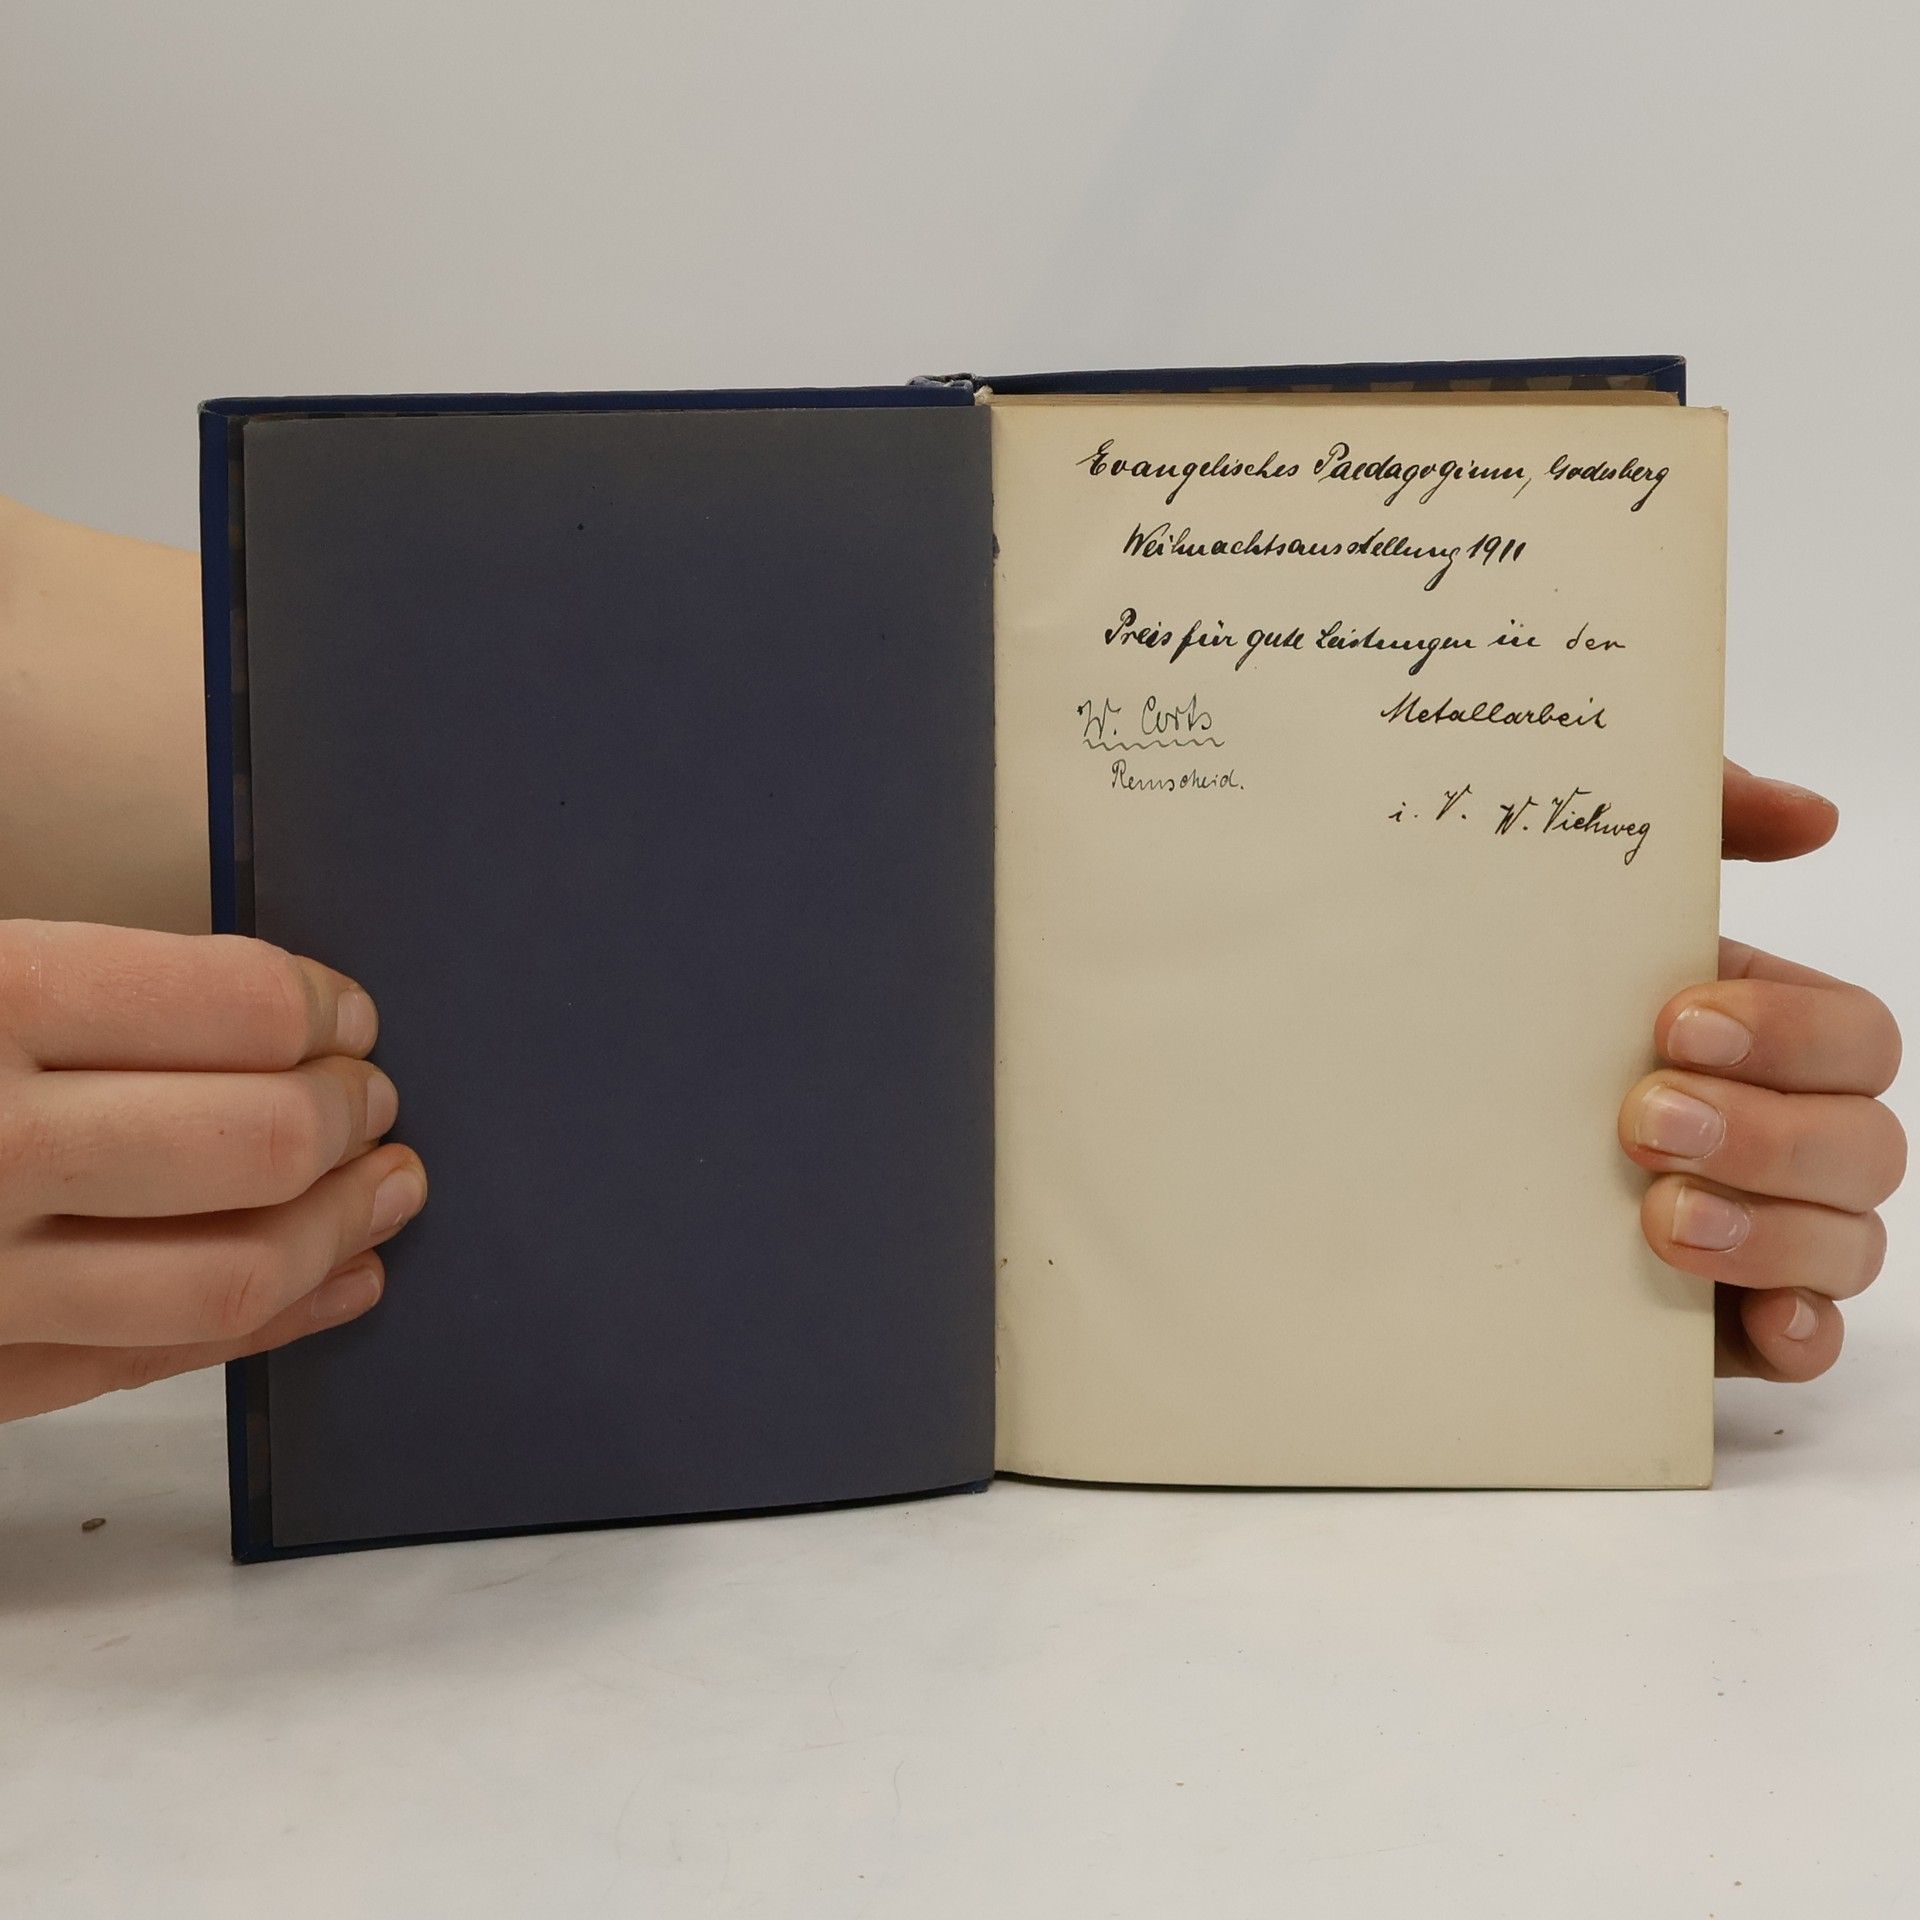 Evangelisches Paedagogium, Godesberg
Weihnachtsausstellung 1911
Preis für gute Leistungen in der
Metallarbeit
W. Corts
Remscheid.
i. V. W. Viehweg